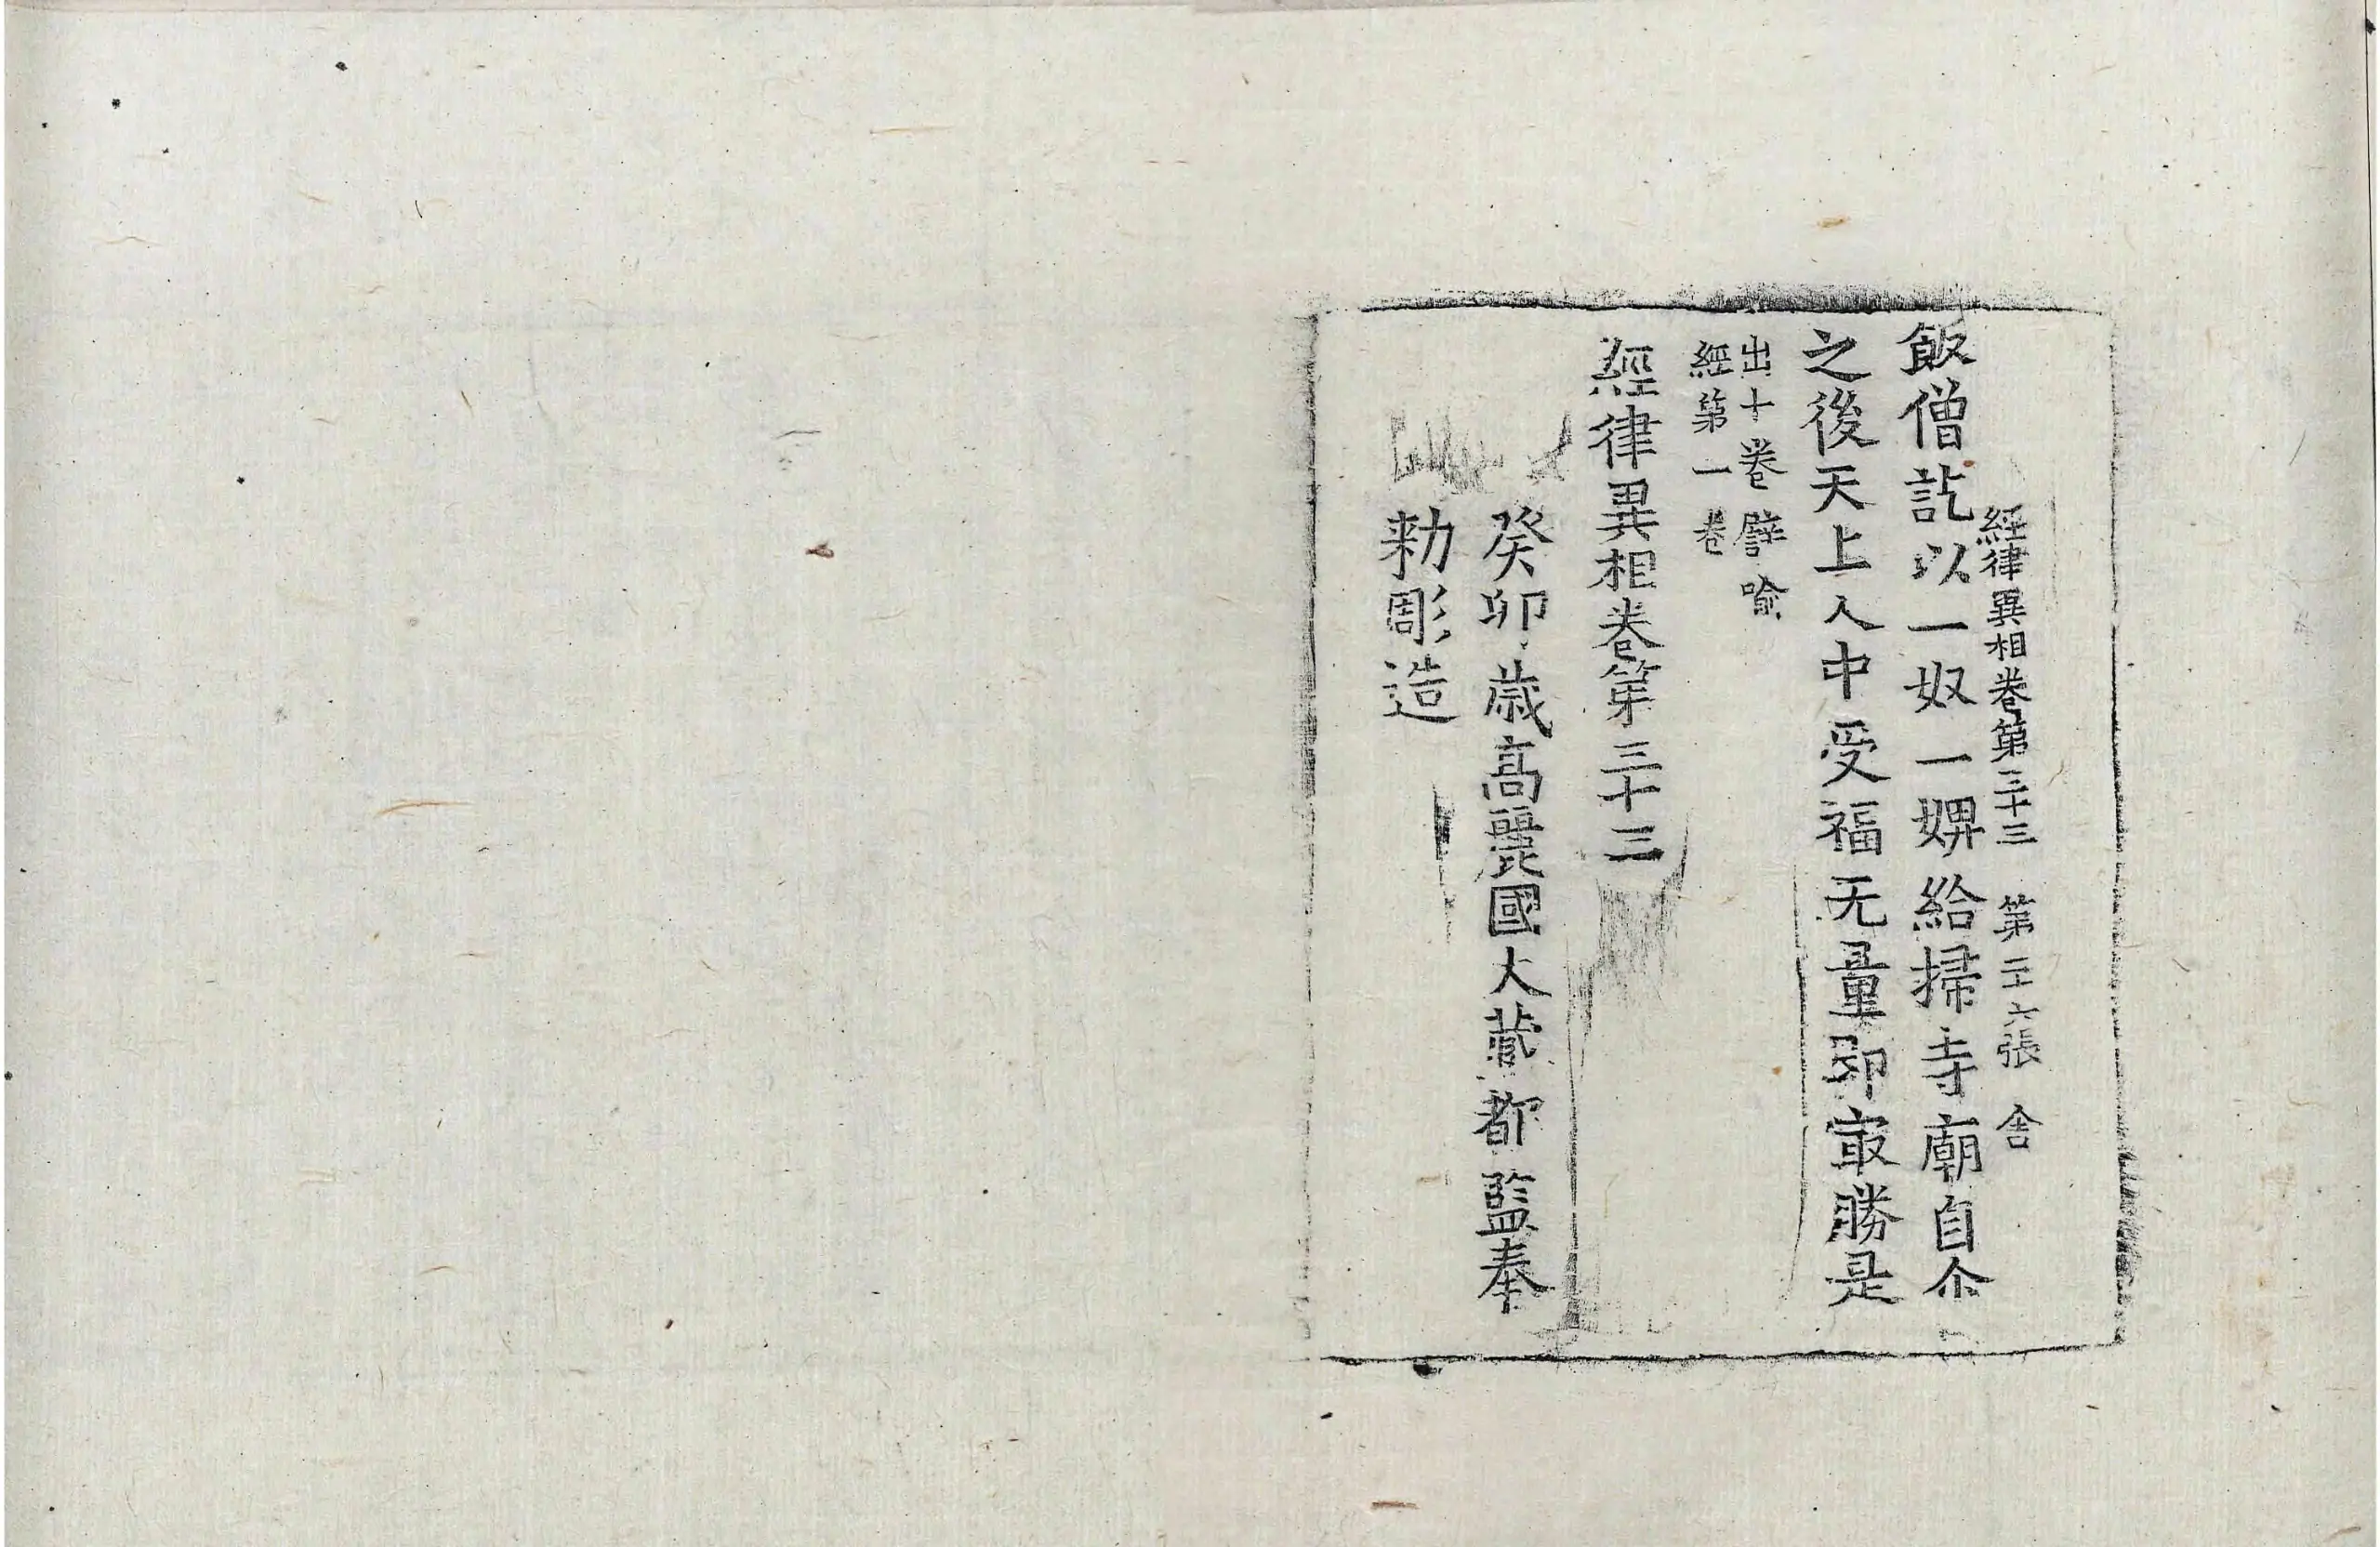 經律異相卷第三十三 第二十六張 舍
飯僧訖以一奴一婢給掃寺廟自尒
之後天上人中受福无量即㝡勝是
出十卷譬喻
經第一卷
經律異相卷第三十三
癸卯歲高麗國大藏都監奉
勅彫造